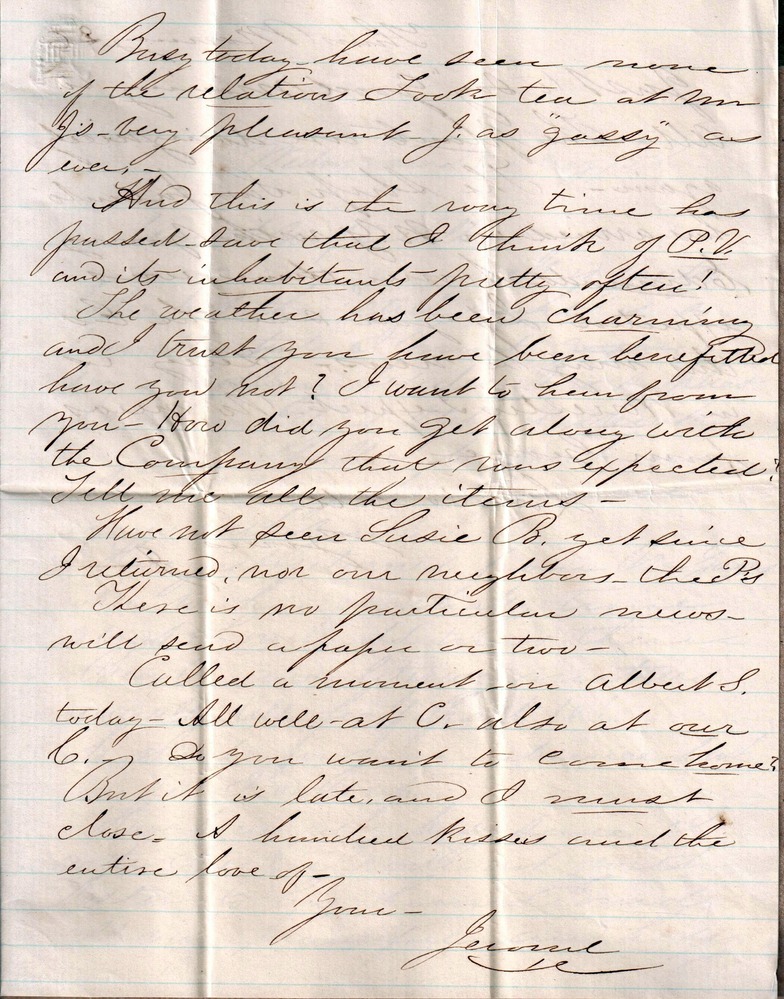 Busy today - have seen none
of the relations Took tea at Mr
J's - very pleasant J. as "gassy" as
ever, -
And this is the way time has
passed - save that I think of P.V.
and its inhabitants pretty often!
The weather has been charming
and I trust you have been benefitted
have you not? I want to hear from
you - How did you get along with
the Company that was expected?
Tell me all the items -
Have not seen Susie B. yet since
I returned, nor our neighbors - the Ps
There is no particular news -
will send a paper or two -
Called a moment on Albert S.
today - All well - at C. - also at our
C. - Do you want to come home?
But it is late, and I must
close - A hundred kisses and the
entire love of -
Your -
Jerome